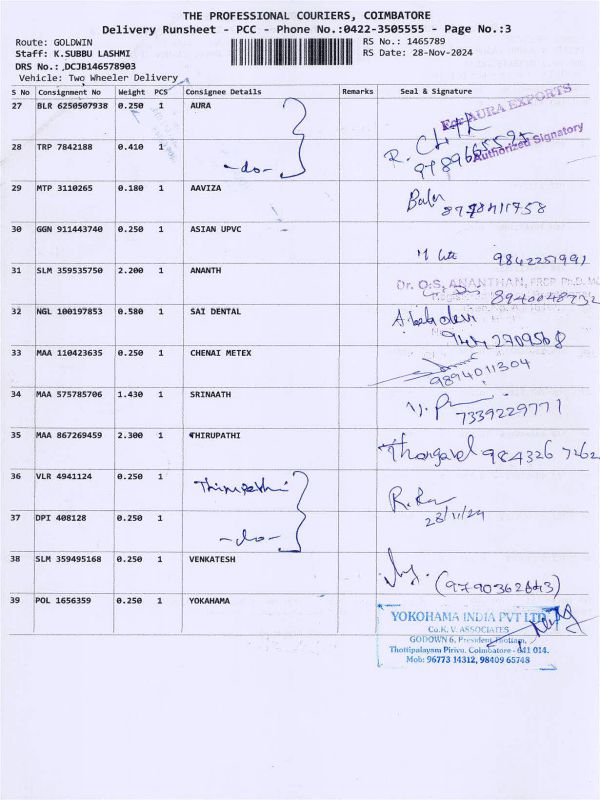 THE PROFESSIONAL COURIERS, COIMBATORE
Delivery Runsheet - PCC - Phone No.:0422-3505555 - Page No.:3
Route: GOLDWIN
RS No.: 1465789
Staff: K.SUBBU LASHMI
RS Date: 28-Nov-2024
DRS No.: ,DCJB146578903
Vehicle: Two Wheeler Delivery
S No Consignment No Weight PCS Consignee Details Remarks Seal & Signature
27 BLR 6250507938 0.250 1 AURA
For AURA EXPORTS
Authorized Signatory
28 TRP 7842188 0.410 1 -do-
29 MTP 3110265 0.180 1 AAVIZA
30 GGN 911443740 0.250 1 ASIAN UPVC 9842251991
31 SLM 359535750 2.200 1 ANANTH
Dr. O.S. ANANTHAN,
8940048732
32 NGL 100197853 0.580 1 SAI DENTAL
33 MAA 110423635 0.250 1 CHENAI METEX
9894011304
34 MAA 575785706 1.430 1 SRINAATH
7339229771
35 MAA 867269459 2.300 1 THIRUPATHI
Thangavel 984326 7262
36 VLR 4941124 0.250 1 Thirupathi
28/11/24
37 DPI 408128 0.250 1 -do-
38 SLM 359495168 0.250 1 VENKATESH
39 POL 1656359 0.250 1 YOKAHAMA
YOKOHAMA INDIA PVT LTD
Co.K. V. ASSOCIATES
GODOWN 6, President Thottam,
Thottipalayam Pirivu. Coimbatore - 641 014.
Mob: 96773 14312, 98409 65748